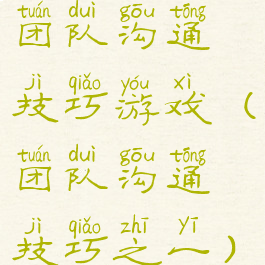 tuán duì gōu tōng
团队沟通
jì qiǎo yóu xì
技巧游戏（
tuán duì gōu tōng
团队沟通
jì qiǎo zhī yī
技巧之一）